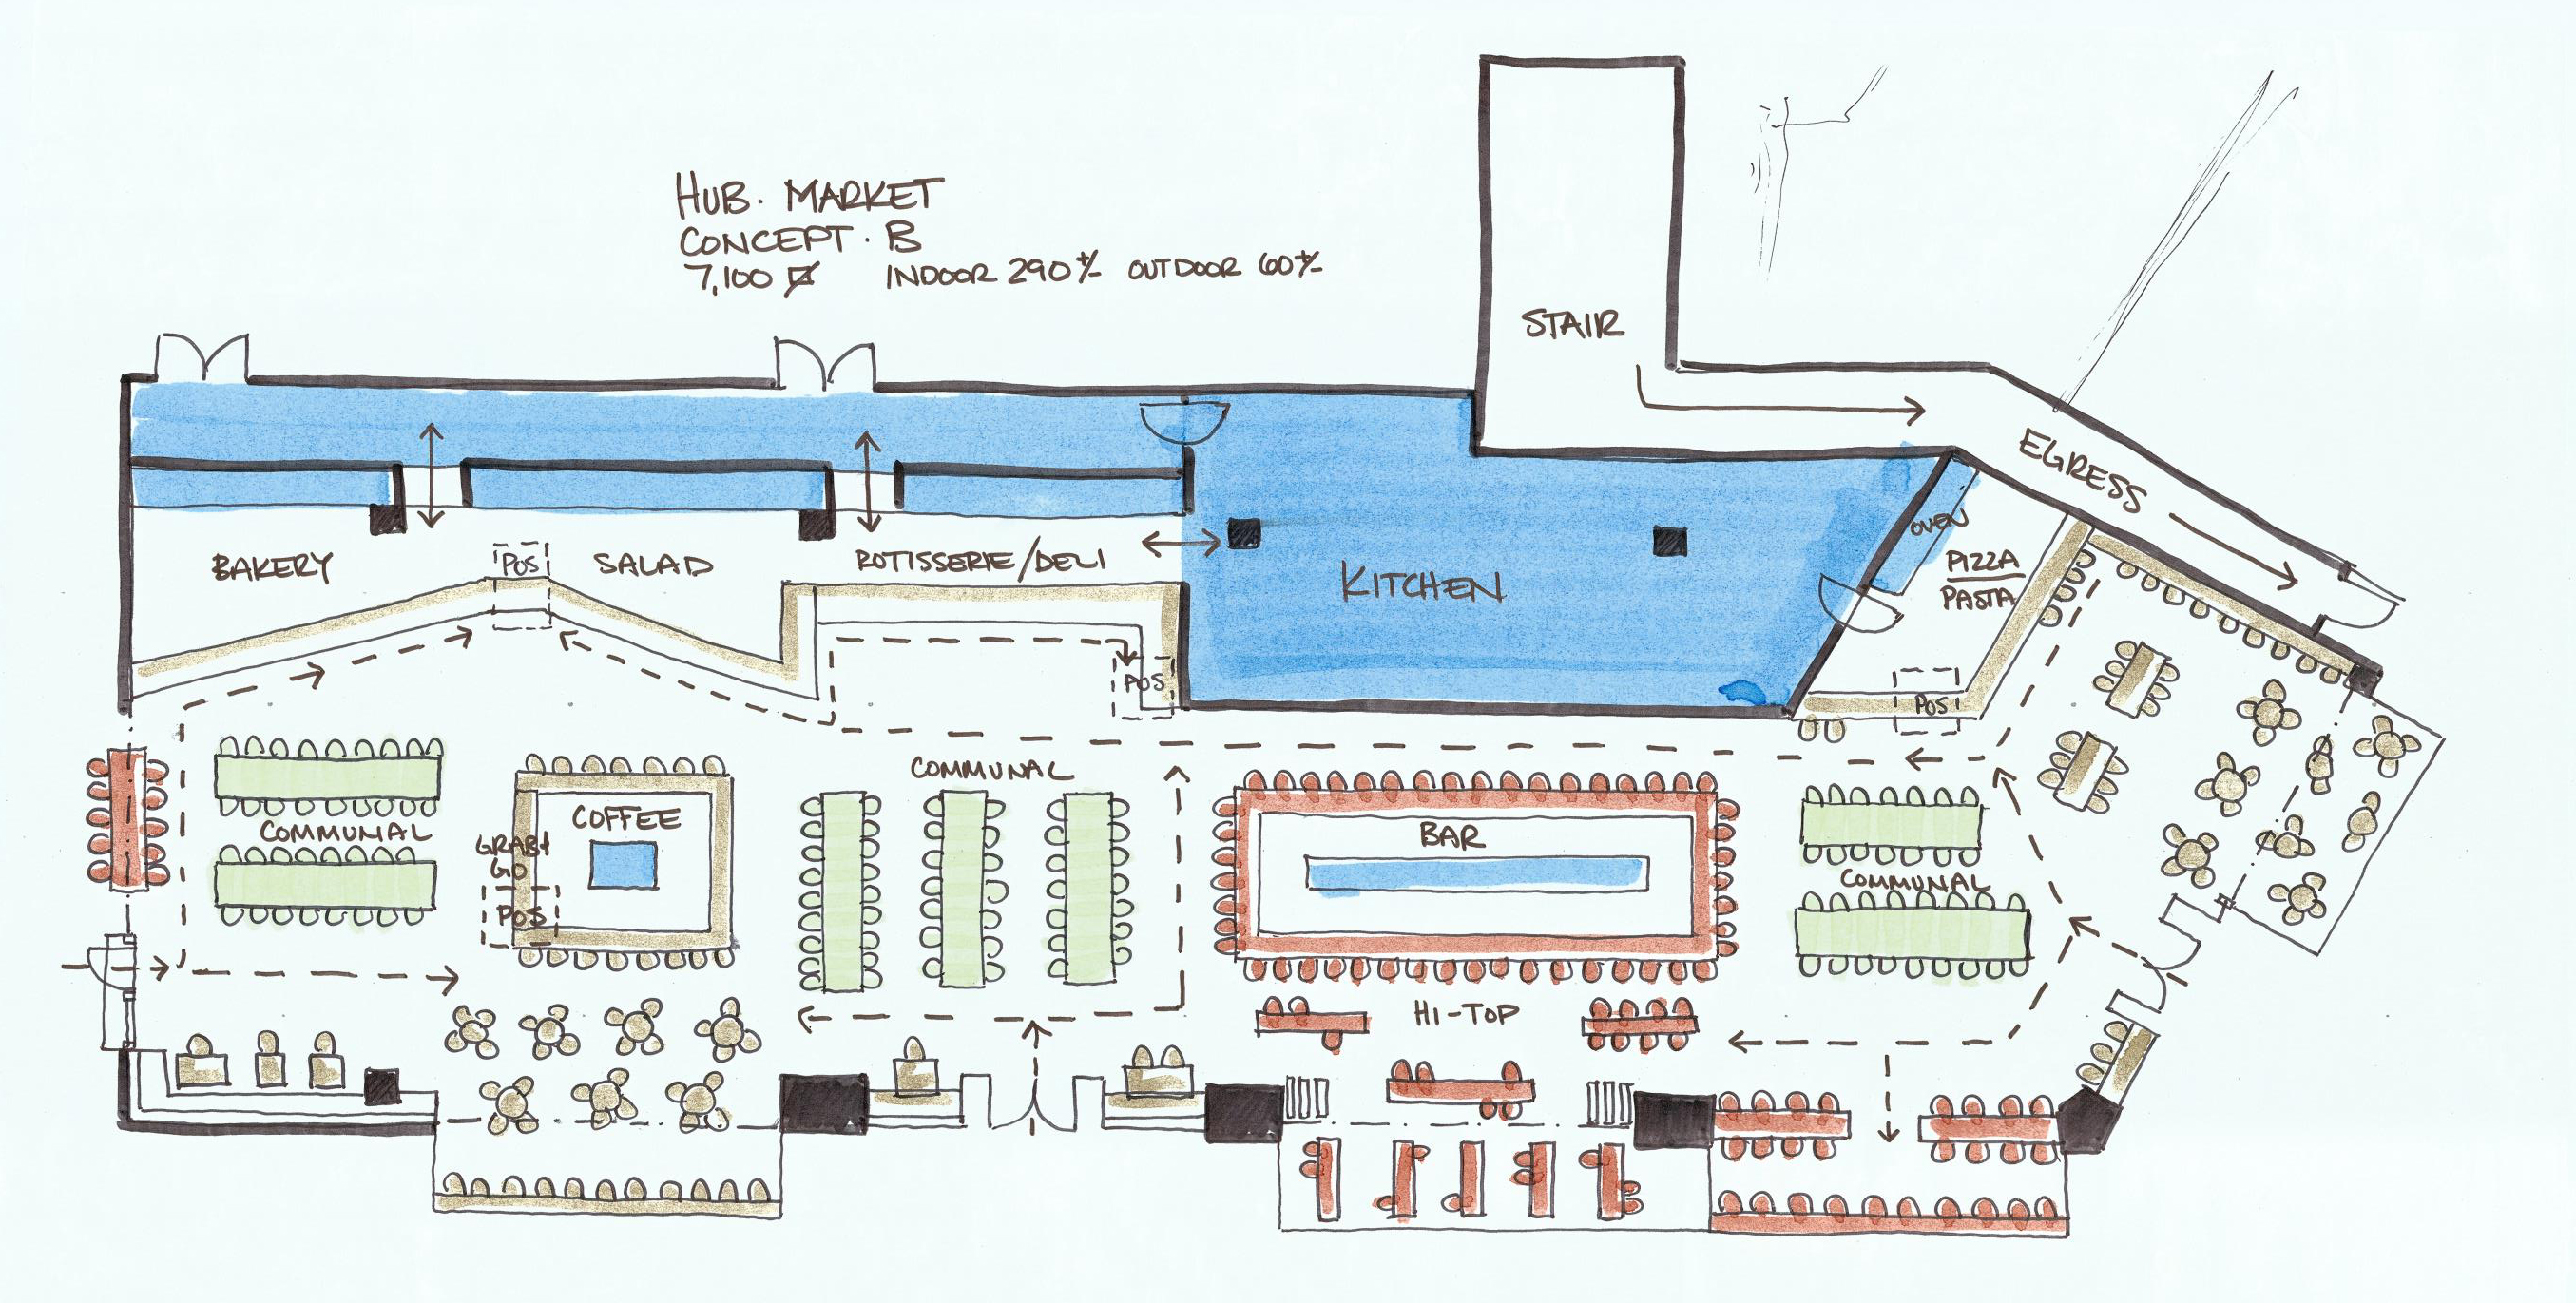 HUB. MARKET
CONCEPT. B
7,100 INDOOR 290 +/- OUTDOOR 60 +/-
STAIR
EGRESS
BAKERY
POS
SALAD
ROTISSERIE/DELI
POS
KITCHEN
OVEN
PIZZA
PASTA
POS
COMMUNAL
GRAB+
GO
POS
COFFEE
COMMUNAL
BAR
HI-TOP
COMMUNAL